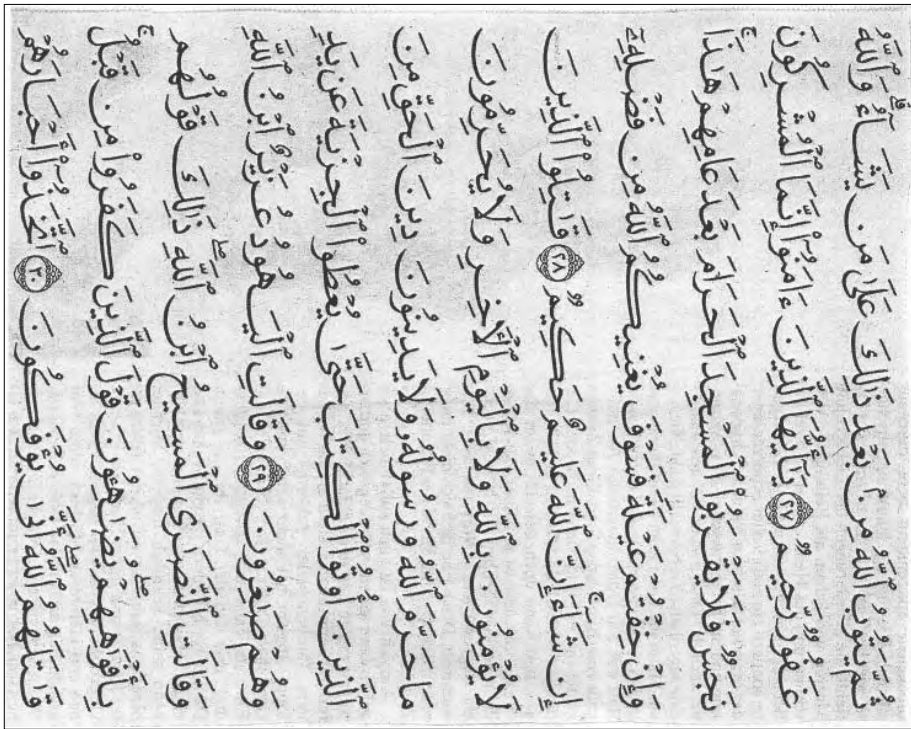 ثُمَّ يَتُوبُ ٱللَّهُ مِنۢ بَعْدِ ذَٰلِكَ عَلَىٰ مَن يَشَآءُ ۗ وَٱللَّهُ
غَفُورٌ رَّحِيمٌ ٢٧ يَٰٓأَيُّهَا ٱلَّذِينَ ءَامَنُوٓا۟ إِنَّمَا ٱلْمُشْرِكُونَ
نَجَسٌ فَلَا يَقْرَبُوا۟ ٱلْمَسْجِدَ ٱلْحَرَامَ بَعْدَ عَامِهِمْ هَٰذَا ۚ
وَإِنْ خِفْتُمْ عَيْلَةً فَسَوْفَ يُغْنِيكُمُ ٱللَّهُ مِن فَضْلِهِۦٓ
إِن شَآءَ ۚ إِنَّ ٱللَّهَ عَلِيمٌ حَكِيمٌ ٢٨ قَٰتِلُوا۟ ٱلَّذِينَ
لَا يُؤْمِنُونَ بِٱللَّهِ وَلَا بِٱلْيَوْمِ ٱلْءَاخِرِ وَلَا يُحَرِّمُونَ
مَا حَرَّمَ ٱللَّهُ وَرَسُولُهُۥ وَلَا يَدِينُونَ دِينَ ٱلْحَقِّ مِنَ
ٱلَّذِينَ أُوتُوا۟ ٱلْكِتَٰبَ حَتَّىٰ يُعْطُوا۟ ٱلْجِزْيَةَ عَن يَدٍ
وَهُمْ صَٰغِرُونَ ٢٩ وَقَالَتِ ٱلْيَهُودُ عُزَيْرٌ ٱبْنُ ٱللَّهِ
وَقَالَتِ ٱلنَّصَٰرَى ٱلْمَسِيحُ ٱبْنُ ٱللَّهِ ۖ ذَٰلِكَ قَوْلُهُم
بِأَفْوَٰهِهِمْ ۖ يُضَٰهِـُٔونَ قَوْلَ ٱلَّذِينَ كَفَرُوا۟ مِن قَبْلُ ۚ
قَٰتَلَهُمُ ٱللَّهُ ۚ أَنَّىٰ يُؤْفَكُونَ ٣٠ ٱتَّخَذُوٓا۟ أَحْبَارَهُمْ